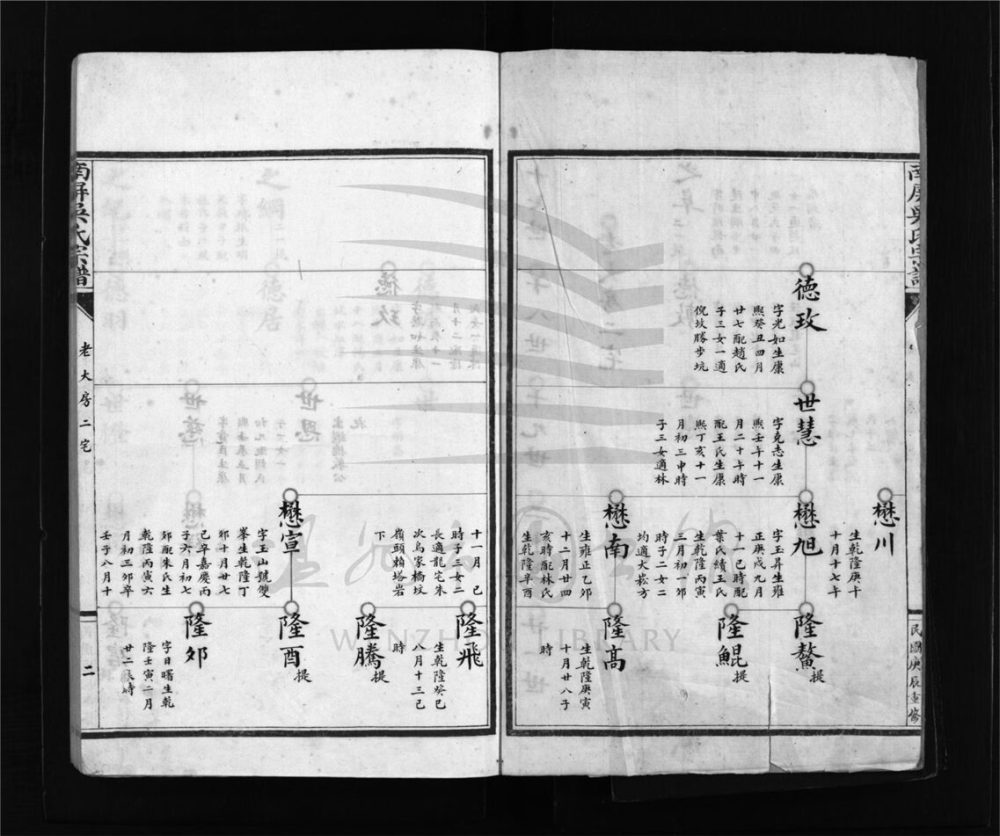 南屏吳氏宗譜
民國庚辰重修
懋川
生乾隆庚十
十月十七年
德玫
字光如生康
熙癸丑四月
廿七配趙氏
子三女一適
倪坟勝步坑
世慧
字克志生康
熙壬午十一
月二十午時
配王氏生康
熙丁亥十一
月初三申時
子三女適林
懋旭
字玉昇生雍
正庚戌九月
十一巳時配
葉氏續王氏
生乾隆丙寅
三月初一卯
時子二女二
均適大菘方
隆鰲
提
隆鯤
提
懋南
生雍正乙卯
十二月廿四
亥時配林氏
生乾隆辛酉
隆高
生乾隆庚寅
十月廿八子
時
十一月 巳
時子三女二
長適龍宅朱
次烏家橋坟
嶺頭賴塔岩
下
隆飛
生乾隆癸巳
八月十三巳
時
隆騰
提
懋宣
字玉山號雙
峯生乾隆丁
卯十月廿七
巳卒嘉慶丙
子六月初七
卯配朱氏生
乾隆丙寅六
月初三卯卒
壬子八月十
隆酉
提
隆郊
字日曙生乾
隆壬寅二月
廿二辰時
德玫
世恩
世慈
南屏吳氏宗譜
老大房二宅
二
WENZHOU LIBRARY